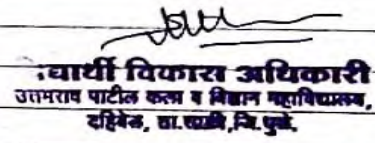 :घार्थी विकास अधिकारी
उत्तमराव पाटील कला व विज्ञान महाविद्यालय,
दहिवेल, ता.साक्री,जि.धुळे.